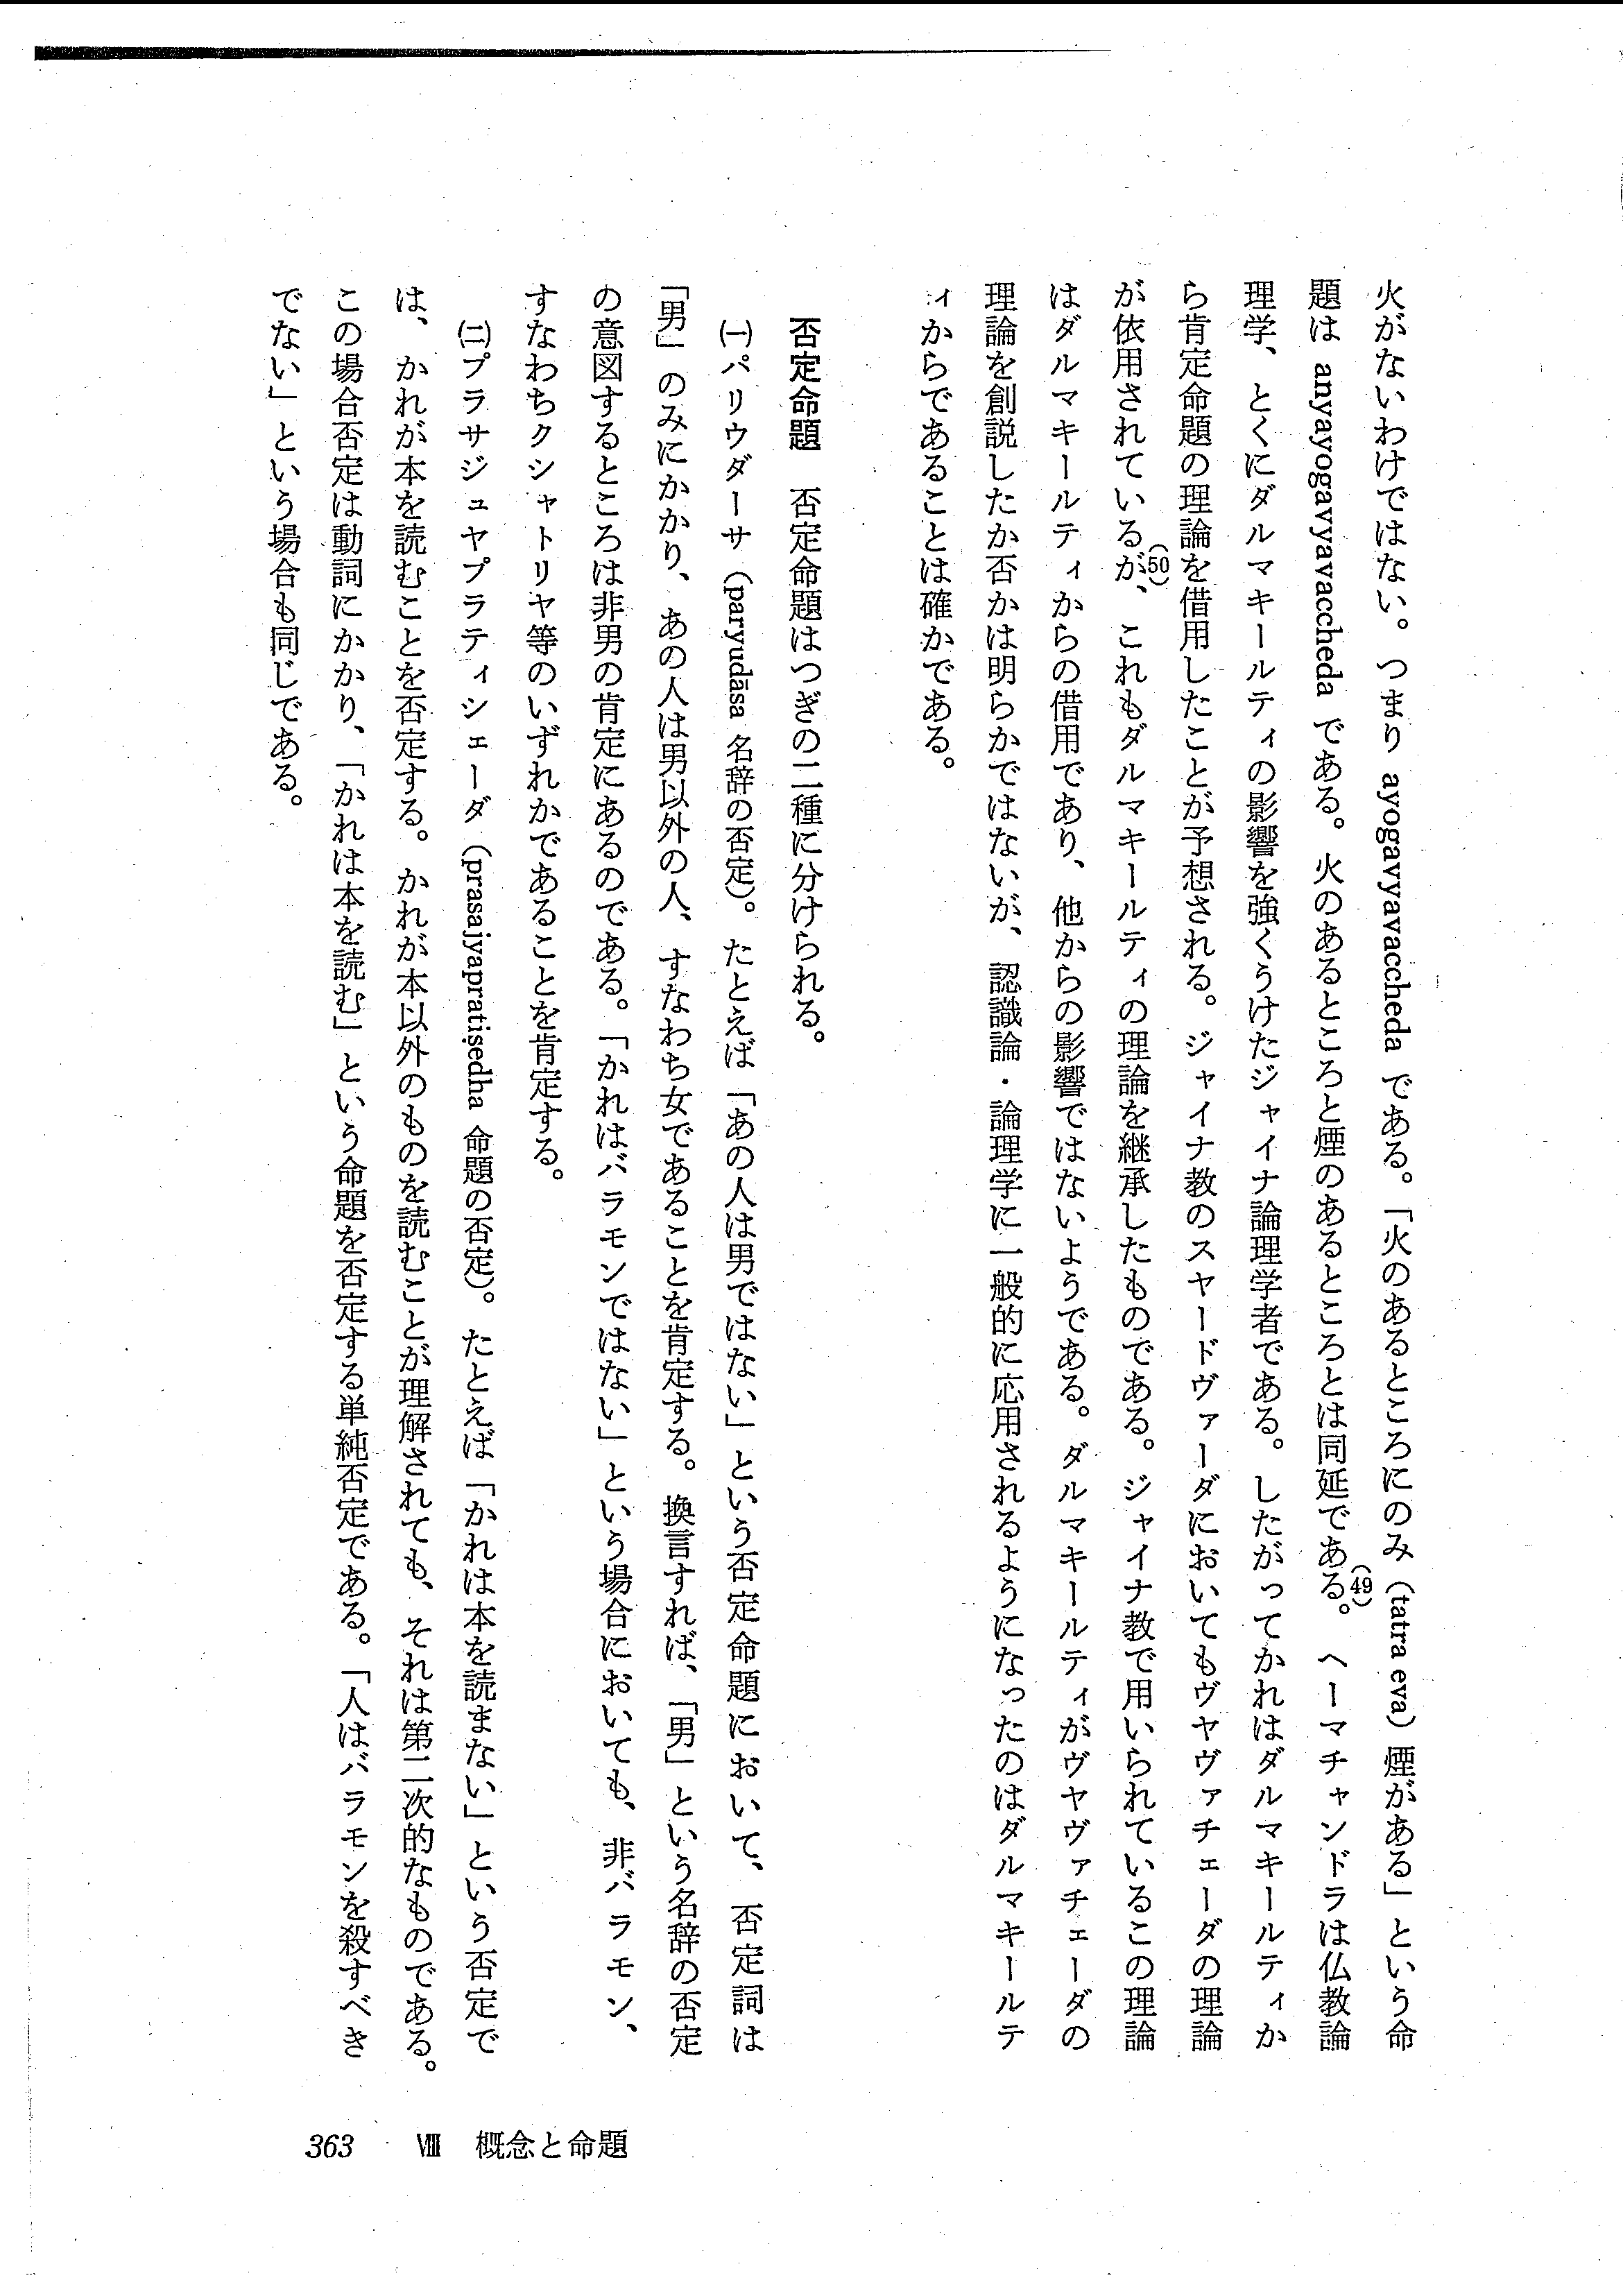 火がないわけではない。つまり ayogavyavaccheda である。「火のあるところにのみ（tatra eva）煙がある」という命
題は anyayogavyavaccheda である。火のあるところと煙のあるところとは同延である。(49) ヘーマチャンドラは仏教論
理学、とくにダルマキールティの影響を強くうけたジャイナ論理学者である。したがってかれはダルマキールティか
ら肯定命題の理論を借用したことが予想される。ジャイナ教のスヤードヴァーダにおいてもヴヤヴァチェーダの理論
が依用されているが、(50) これもダルマキールティの理論を継承したものである。ジャイナ教で用いられているこの理論
はダルマキールティからの借用であり、他からの影響ではないようである。ダルマキールティがヴヤヴァチェーダの
理論を創説したか否かは明らかではないが、認識論・論理学に一般的に応用されるようになったのはダルマキールテ
ィからであることは確かである。
否定命題　否定命題はつぎの二種に分けられる。
㈠パリウダーサ（paryudāsa 名辞の否定）。たとえば「あの人は男ではない」という否定命題において、否定詞は
「男」のみにかかり、あの人は男以外の人、すなわち女であることを肯定する。換言すれば、「男」という名辞の否定
の意図するところは非男の肯定にあるのである。「かれはバラモンではない」という場合においても、非バラモン、
すなわちクシャトリヤ等のいずれかであることを肯定する。
㈡プラサジュヤプラティシェーダ（prasajyapratiṣedha 命題の否定）。たとえば「かれは本を読まない」という否定で
は、かれが本を読むことを否定する。かれが本以外のものを読むことが理解されても、それは第二次的なものである。
この場合否定は動詞にかかり、「かれは本を読む」という命題を否定する単純否定である。「人はバラモンを殺すべき
でない」という場合も同じである。
363　Ⅷ　概念と命題